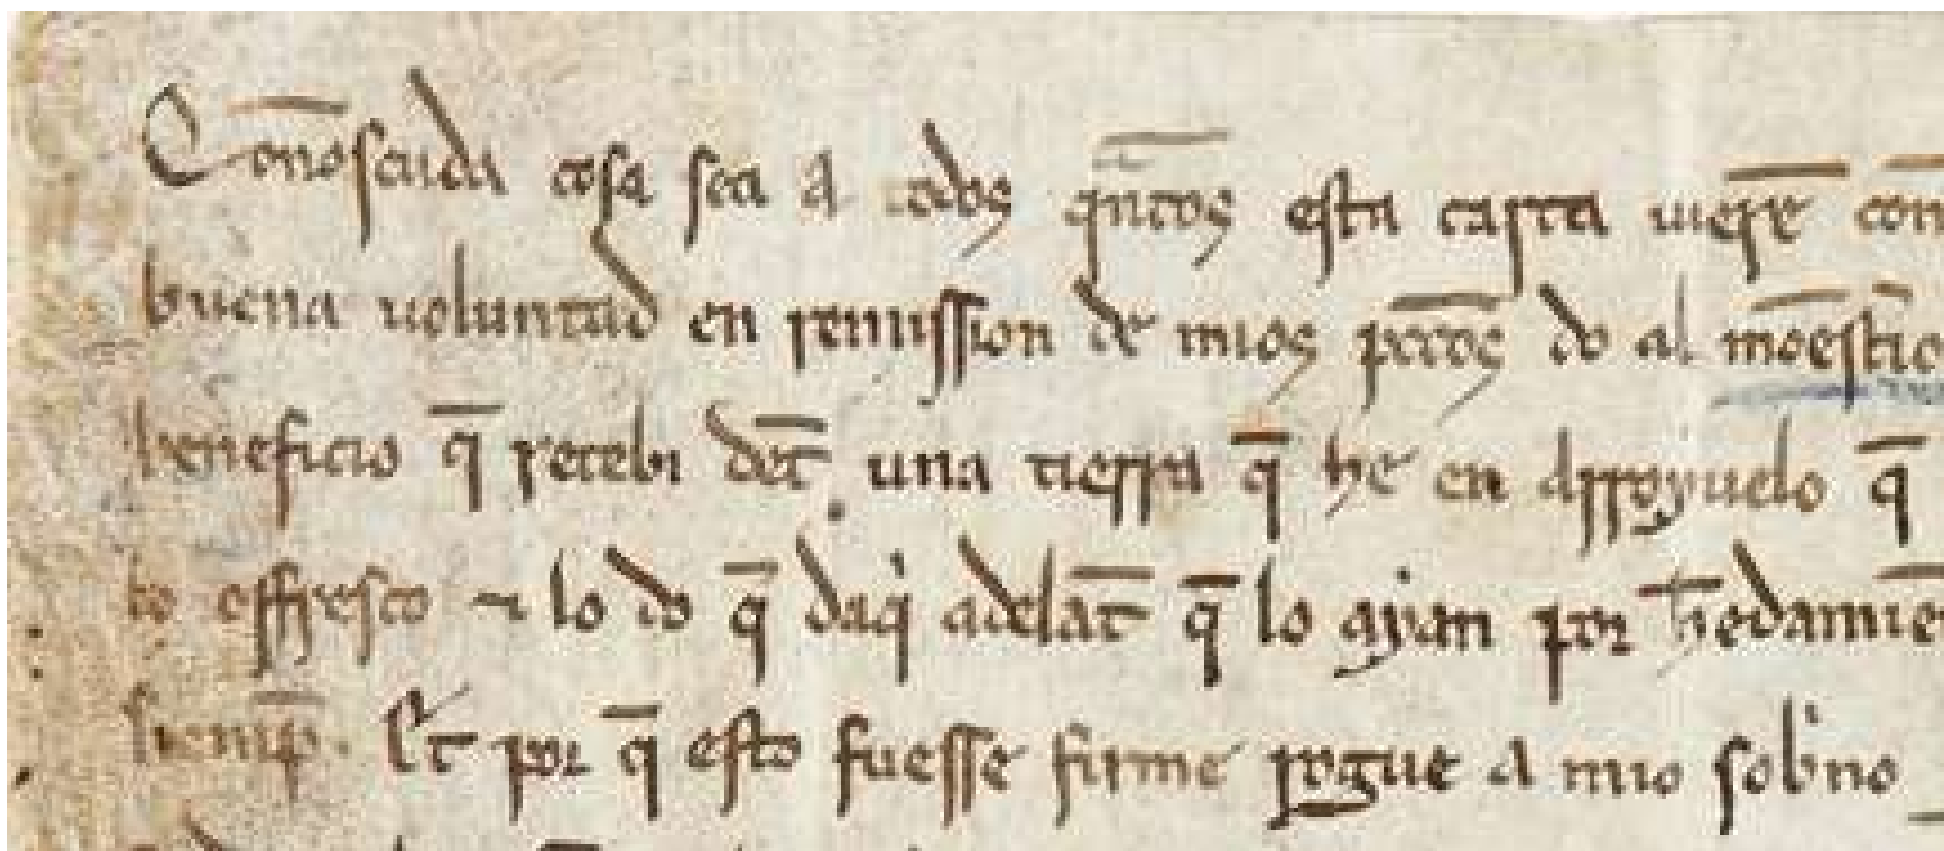 Conoscuda cosa sea a todos qntos esta carta uierẽ con
buena voluntad en remission de mios pccos do al moestio
beneficio q̄ recebi una tierra q̄ he en arroyuelo q̄
to offresco lo do q̄ daqi adelāt q̄ lo ayan por hedamie
siemp̄. Et por q̄ esto fuesse firme rogue a mio sobno